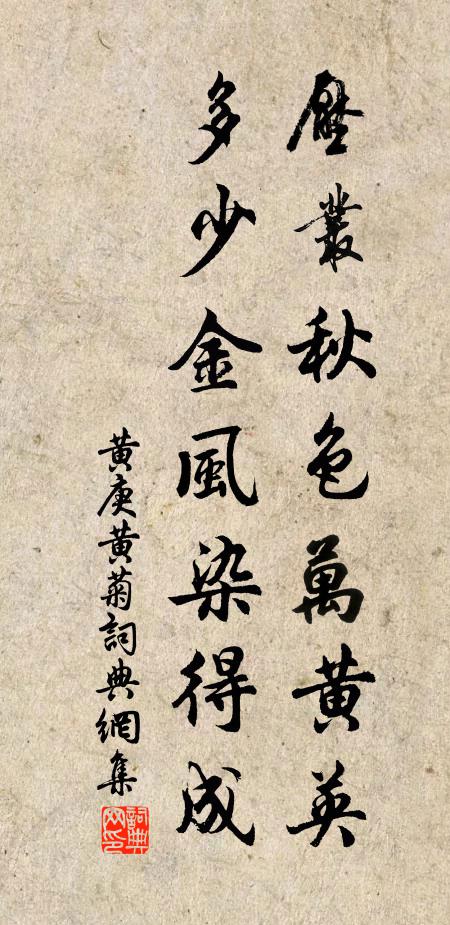 壓叢秋色萬黃英
多少金風染得成
黃庚黃菊詞典網集
詞典网印